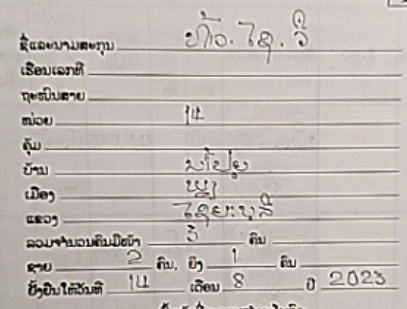 ຊື່ແລະນາມສະກຸນ ທ້າວ. ໄຊ. ວີ
ເຮືອນເລກທີ
ຖະໜົນສາຍ
ໜ່ວຍ 14
ຄຸ້ມ
ບ້ານ
ເມືອງ
ແຂວງ ໄຊຍະບຸລີ
ລວມຈຳນວນຄົນມີໜ້າ 3 ຄົນ
ຊາຍ 2 ຄົນ, ຍິງ 1 ຄົນ
ຢັ້ງຢືນໃຫ້ວັນທີ 14 ເດືອນ 8 ປີ 2023